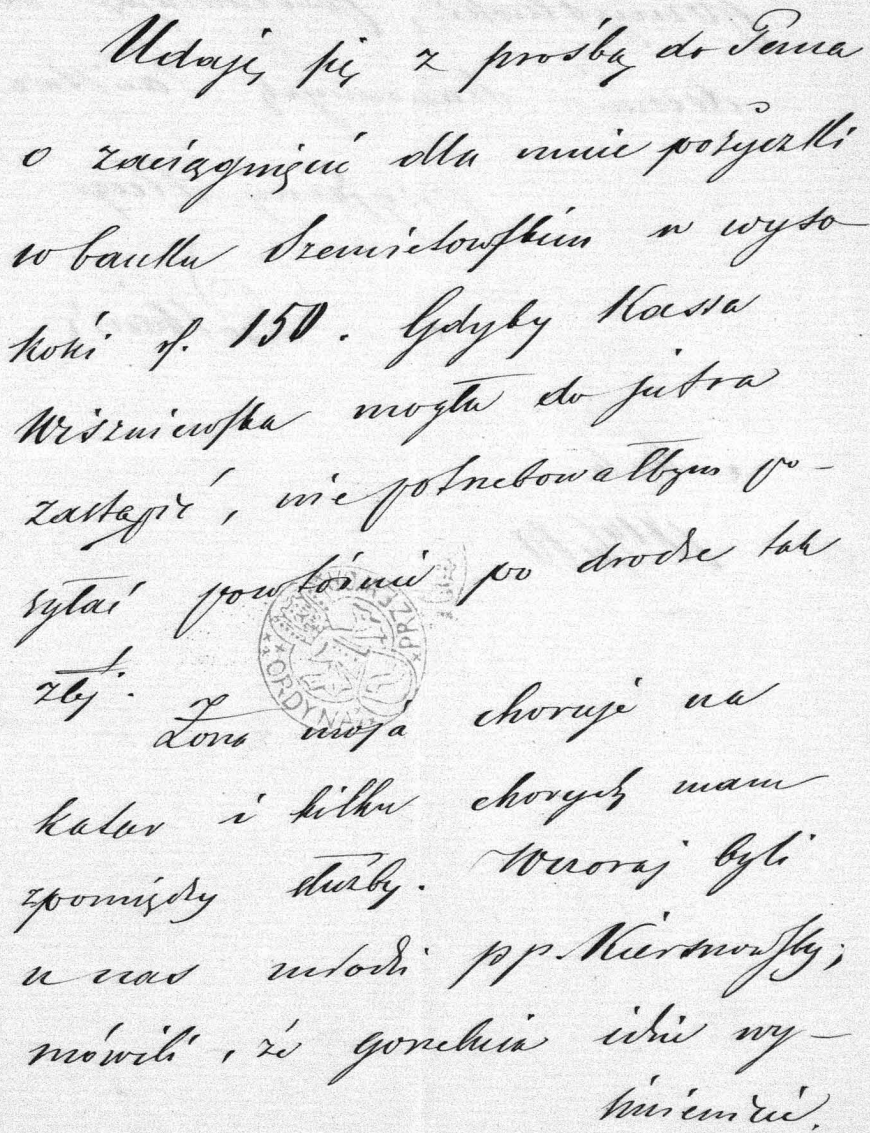 Udaję się z prośbą do Pana
o zaciągnięcie dla mnie pożyczki
w banku Szemiotowskim w wyso-
kości rf. 150. Gdyby Kassa
Wiszniewska mogła do jutra
zastąpić, nie potrzebowałbym po-
syłać powtórnie po drodze tak
złej.
Żona moja choruje na
katar i kilku chorych mam
zpomiędzy służby. Wczoraj byli
u nas młodzi pp. Kiersnowscy;
mówili, że gorzelnia idzie wy-
śmienicie.
ORDYNA
PRZE